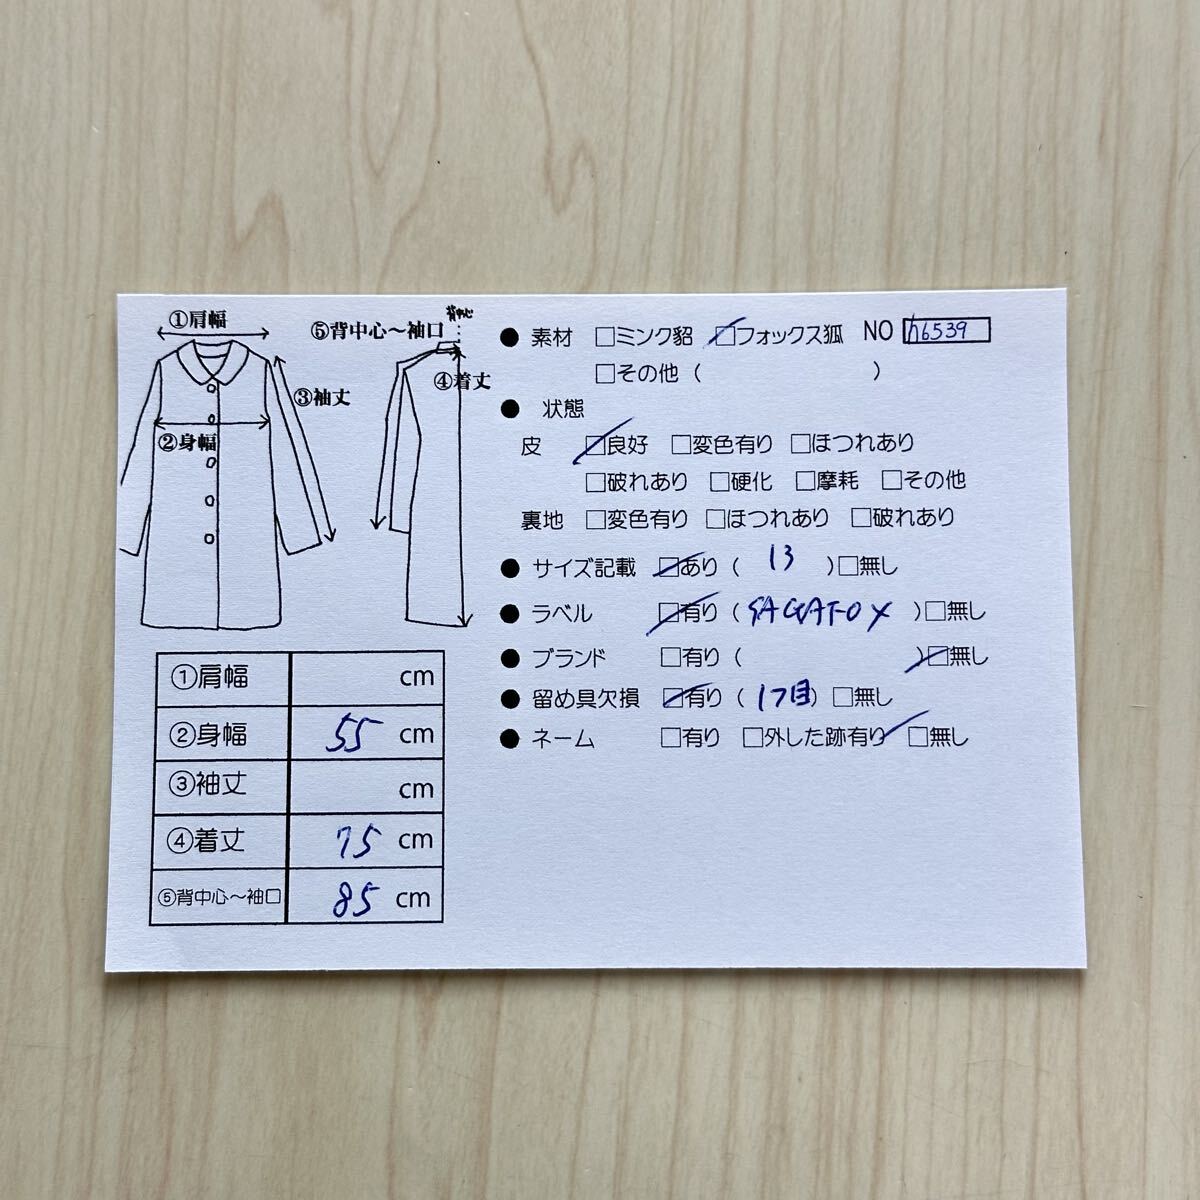 ①肩幅
⑤背中心～袖口
背中心
④着丈
③袖丈
②身幅
①肩幅 cm
②身幅 55 cm
③袖丈 cm
④着丈 75 cm
⑤背中心～袖口 85 cm
● 素材 □ミンク貂 □フォックス狐 NO h6539
□その他 ( )
● 状態
皮 □良好 □変色有り □ほつれあり
□破れあり □硬化 □摩耗 □その他
裏地 □変色有り □ほつれあり □破れあり
● サイズ記載 □あり ( 13 ) □無し
● ラベル □有り ( SAGAFOX ) □無し
● ブランド □有り ( ) □無し
● 留め具欠損 □有り ( 1つ目 ) □無し
● ネーム □有り □外した跡有り □無し